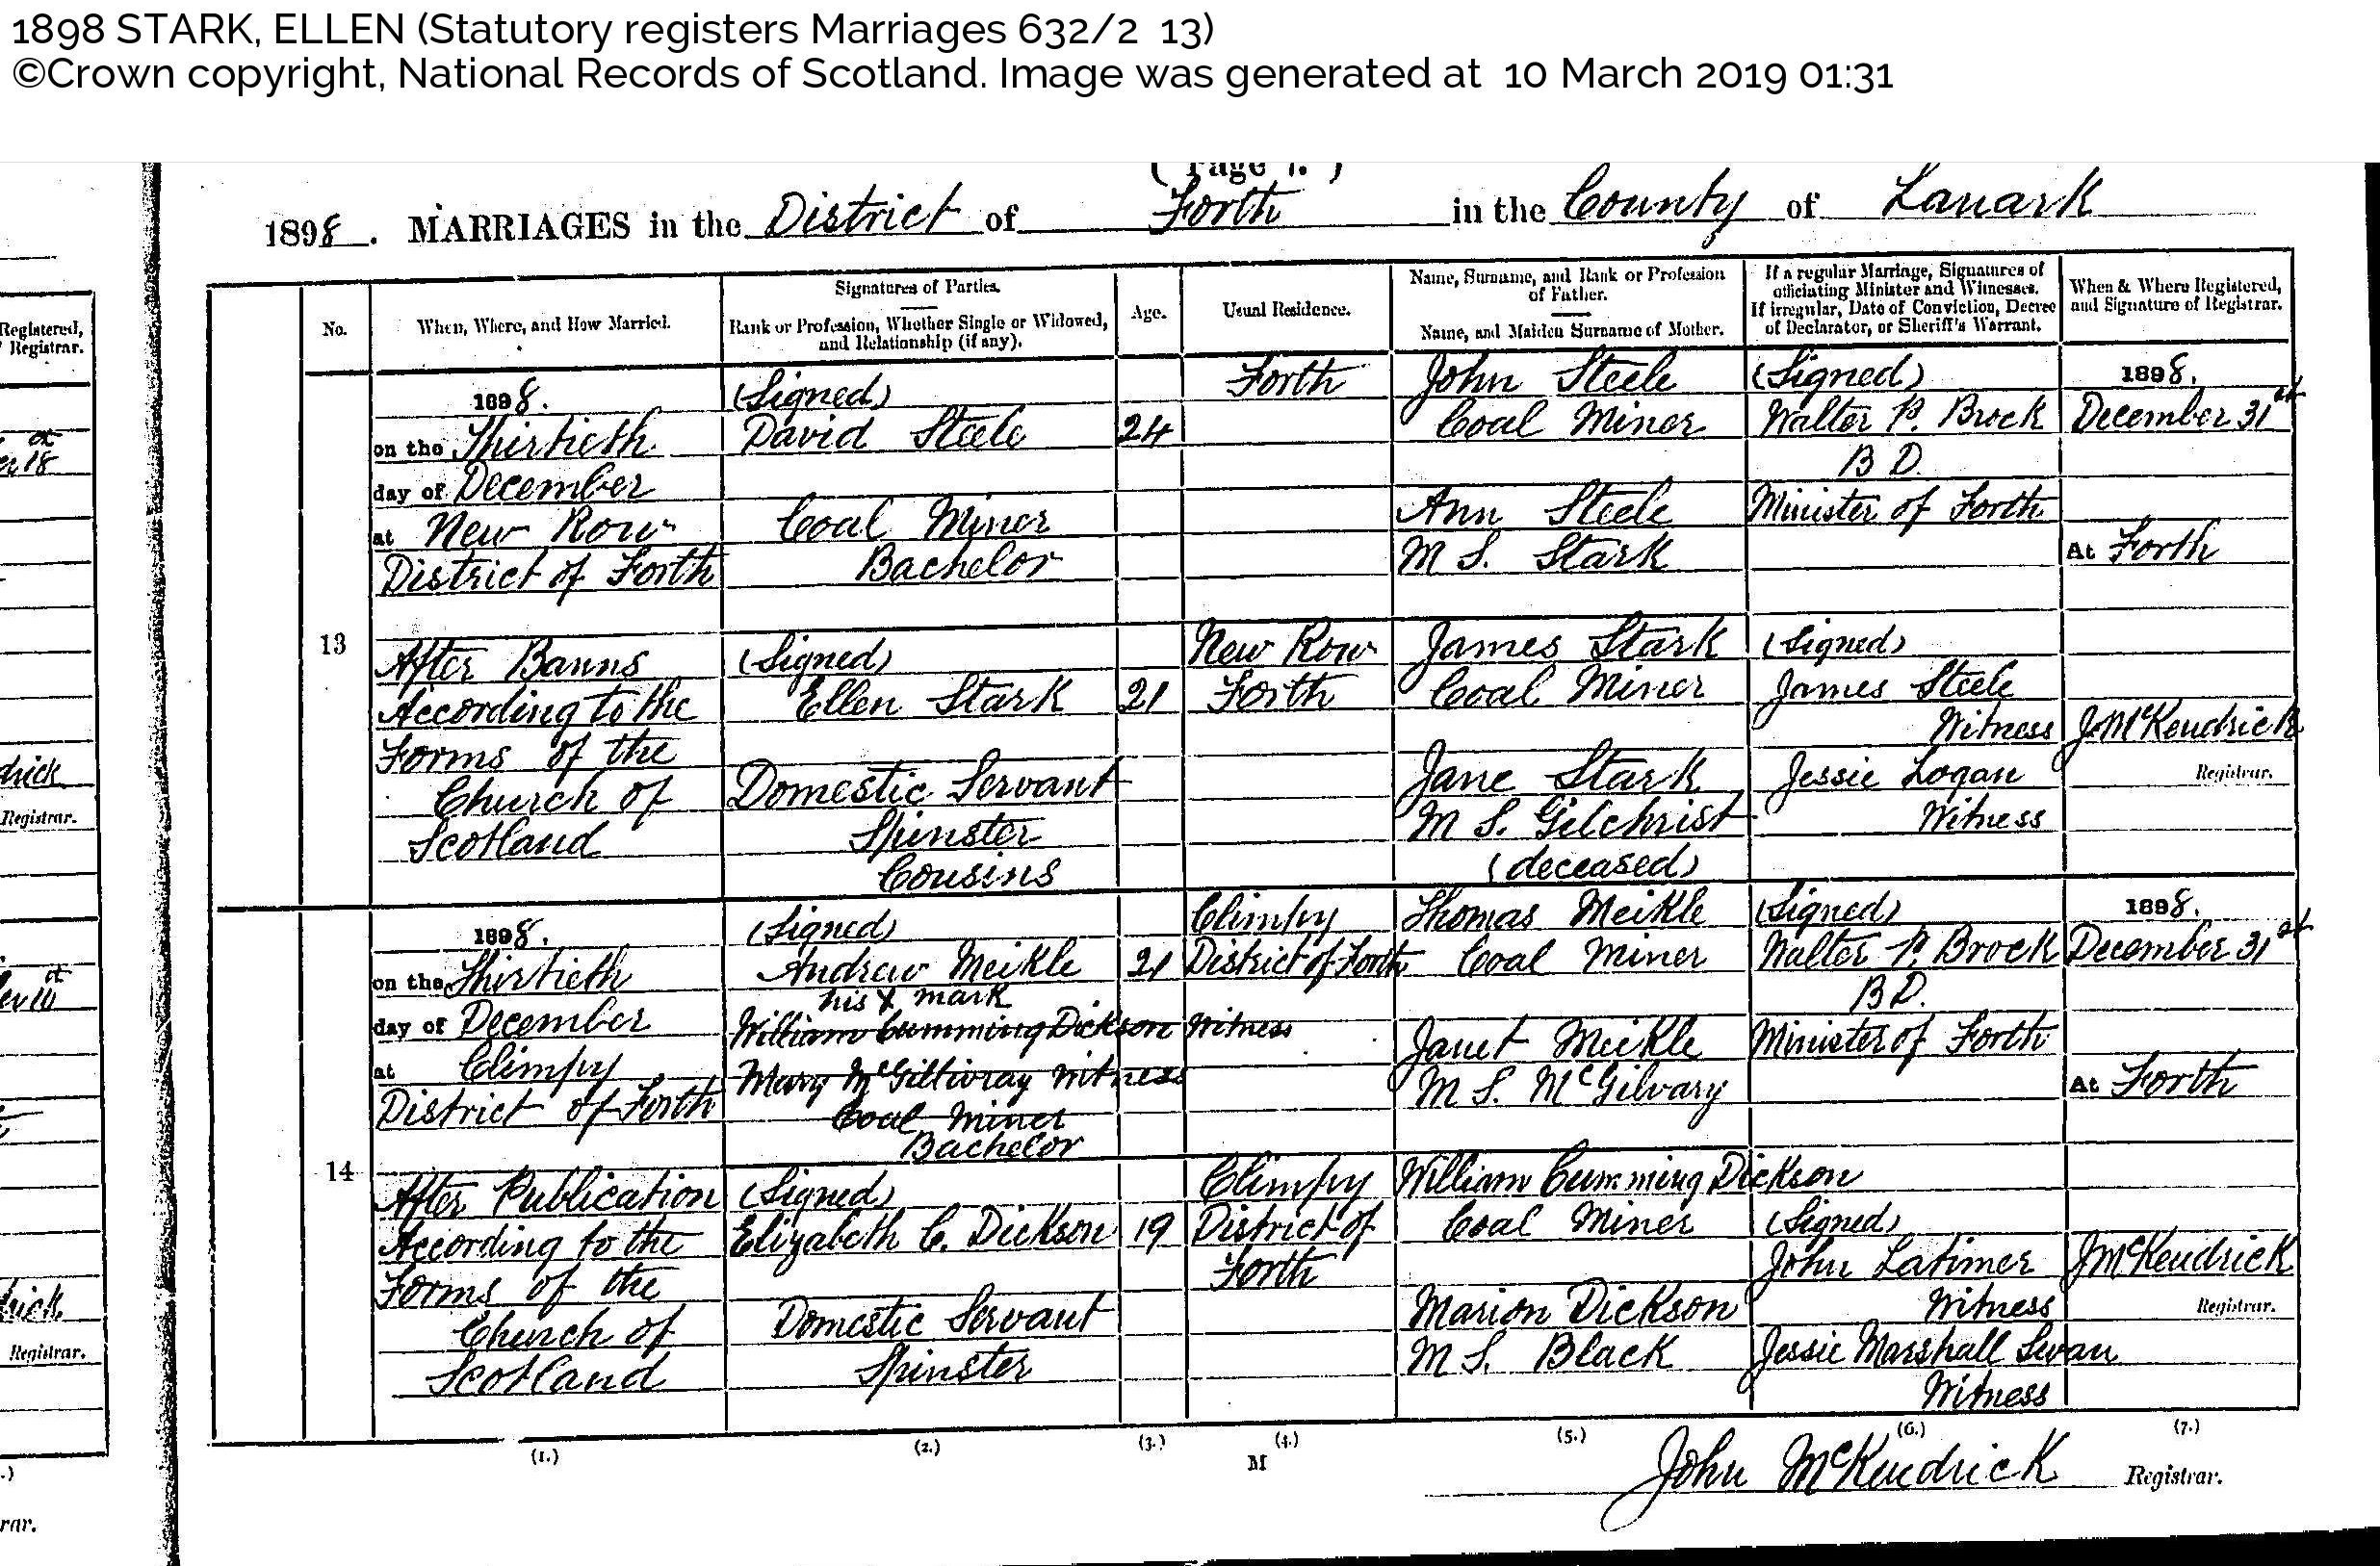 1898 STARK, ELLEN (Statutory registers Marriages 632/2 13)
©Crown copyright, National Records of Scotland. Image was generated at 10 March 2019 01:31
( Page 7. )
1898. MARRIAGES in the District of Forth in the County of Lanark
Registered,
Registrar.
No.
When, Where, and How Married.
Signatures of Parties.
Rank or Profession, Whether Single or Widowed,
and Relationship (if any).
Age.
Usual Residence.
Name, Surname, and Rank or Profession
of Father.
Name, and Maiden Surname of Mother.
If a regular Marriage, Signatures of
officiating Minister and Witnesses.
If irregular, Date of Conviction, Decree
of Declarator, or Sheriff's Warrant.
When & Where Registered,
and Signature of Registrar.
13
1898.
on the Thirtieth
day of December
at New Row
District of Forth
After Banns
According to the
Forms of the
Church of
Scotland
(Signed)
David Steele
Coal Miner
Bachelor
(Signed)
Ellen Stark
Domestic Servant
Spinster
Cousins
24
21
Forth
New Row
Forth
John Steele
Coal Miner
Ann Steele
M S. Stark
James Stark
Coal Miner
Jane Stark
M S. Gilchrist
(deceased)
(Signed)
Walter P. Brock
B D.
Minister of Forth
(Signed)
James Steele
Witness
Jessie Logan
Witness
1898.
December 31st
At Forth
J. McKendrick
Registrar.
14
1898.
on the Thirtieth
day of December
at Climpy
District of Forth
After Publication
According to the
Forms of the
Church of
Scotland
(Signed)
Andrew Meikle
his X mark
William Cumming Dickson Witness
Mary McGillivray Witness
Coal Miner
Bachelor
(Signed)
Elizabeth C. Dickson
Domestic Servant
Spinster
21
19
Climpy
District of Forth
Climpy
District of
Forth
Thomas Meikle
Coal Miner
Janet Meikle
M S. McGilvary
William Cumming Dickson
Coal Miner
Marion Dickson
M S. Black
(Signed)
Walter P. Brock
B D.
Minister of Forth
(Signed)
John Latimer
Witness
Jessie Marshall Swan
Witness
1898.
December 31st
At Forth
J McKendrick
Registrar.
(1.) (2.) (3.) (4.) (5.) (6.) (7.)
M
John McKendrick Registrar.
Registrar.
Registrar.